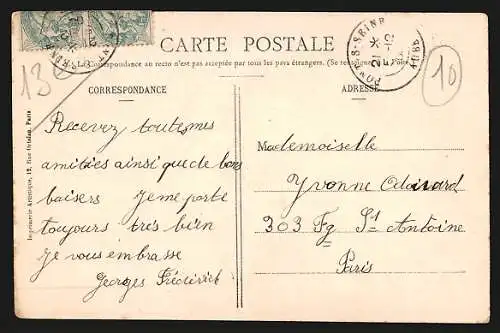 CARTE POSTALE
La Correspondance au recto n'est pas acceptée par tous les pays étrangers. (Se renseigner à la Poste)
CORRESPONDANCE
ADRESSE
PONT-S-SEINE
AUBE
13
10
Recevez toutes mes
amitiées ainsi que de bons
baisers Je me porte
toujours très bien
Je vous embrasse
Georges Fréderick
Mademoiselle
Yvonne
303 Fg St Antoine
Paris
Imprimerie Artistique, 12, Rue Paris